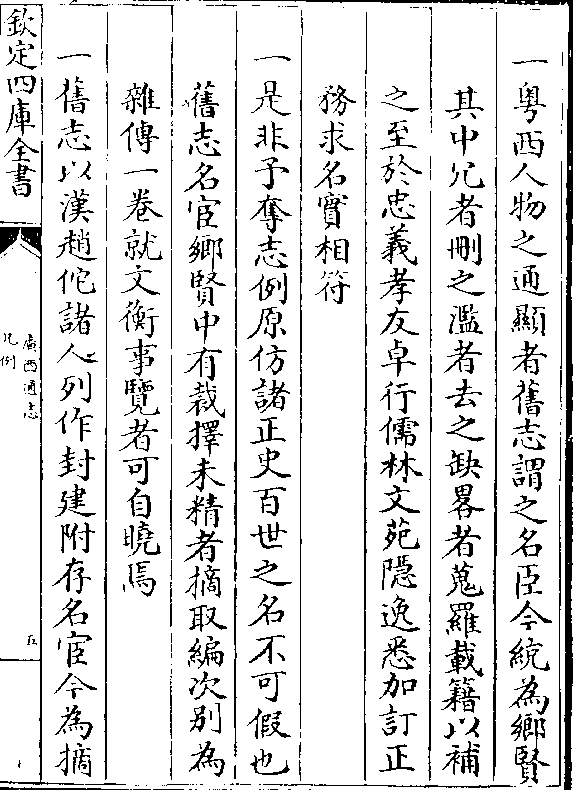 一粤西人物之通顯者舊志謂之名臣今統為鄉賢
其中冗者刪之濫者去之缺畧者蒐羅載籍以補
之至於忠義孝友卓行儒林文苑隱逸悉加訂正
務求名實相符
一是非予奪志例原仿諸正史百世之名不可假也
舊志名宦鄉賢中有裁擇未精者摘取編次別為
雜傳一卷就文衡事覽者可自曉焉
一舊志以漢趙佗諸人列作封建附存名宦今為摘
欽定四庫全書
廣西通志
凡例
五